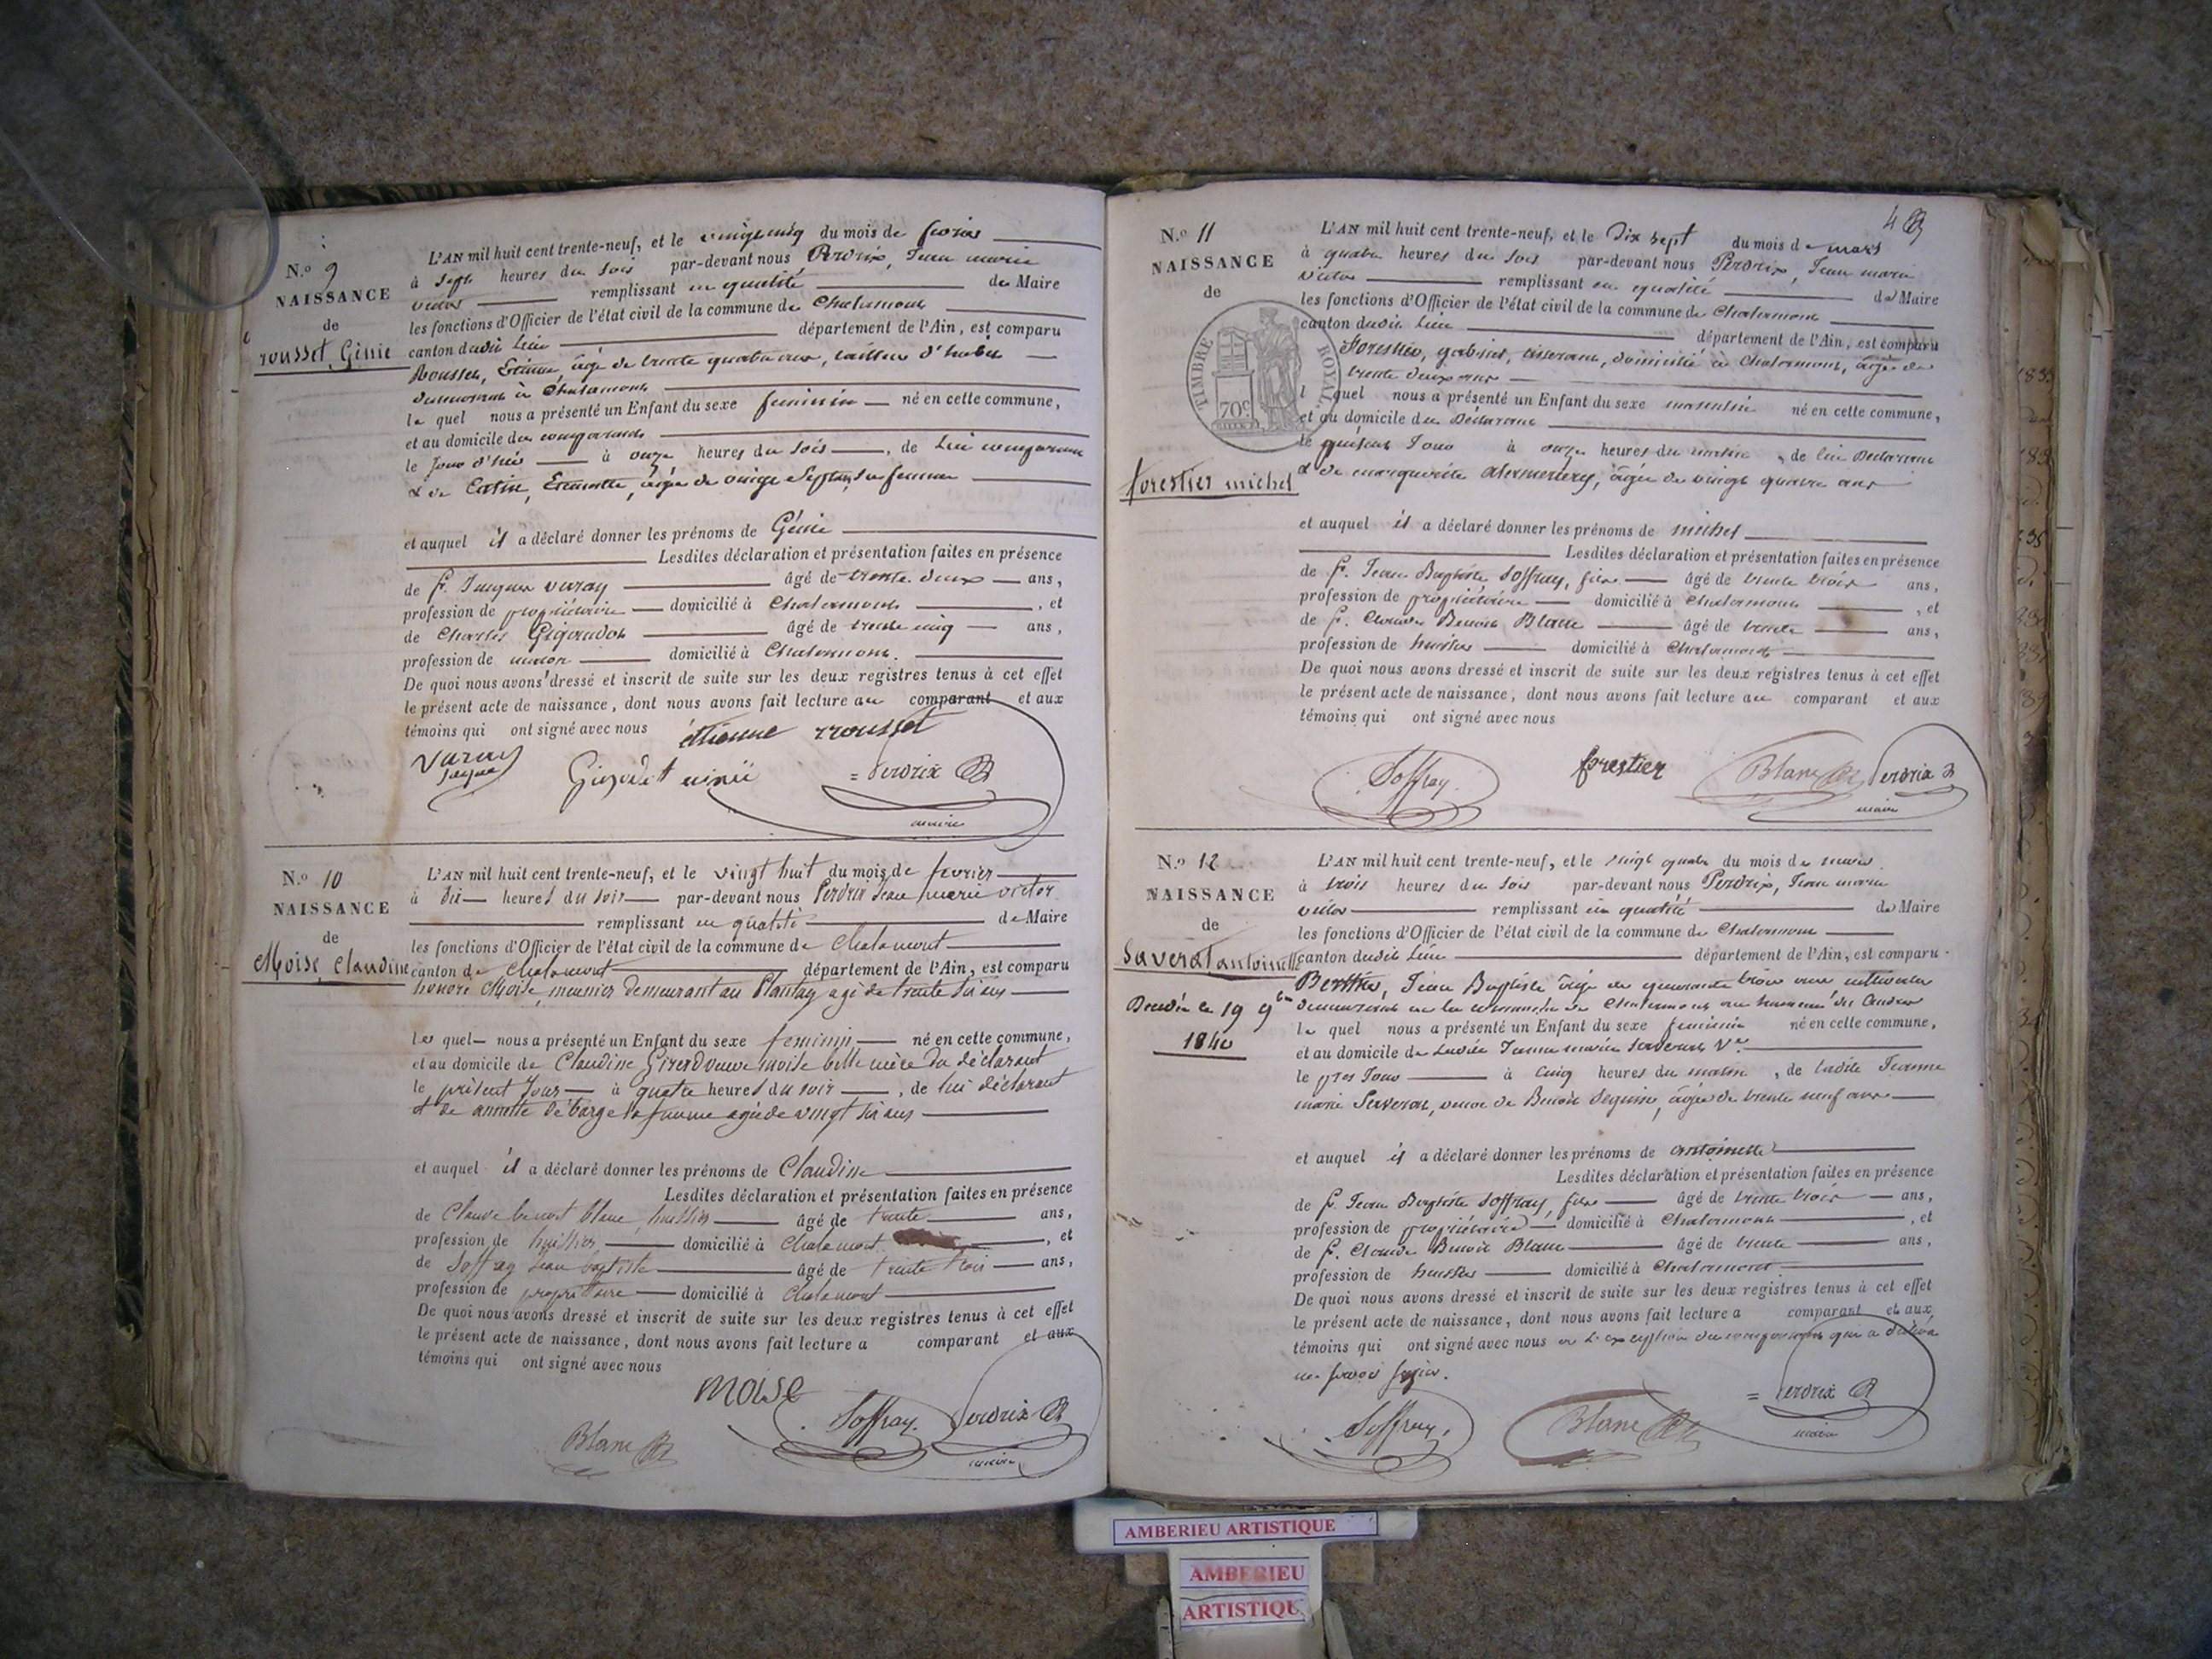 N.º 9
NAISSANCE
de
rousset, Génie
L'AN mil huit cent trente-neuf, et le vingt cinq du mois de février
à sept heures du soir par-devant nous Perdrix, Jean marie
victor remplissant en qualité de Maire
les fonctions d'Officier de l'état civil de la commune de Chalamont
canton dudit Lieu département de l'Ain, est comparu
Rousset, Etienne, âgé de trente quatre ans, tailleur d'habits
demeurant à Chalamont
le quel nous a présenté un Enfant du sexe feminin né en cette commune,
et au domicile du comparant
le jour d'hier à onze heures du soir, de Lui comparant
& de Catin, âgée de vingt Sept ans, sa femme
et auquel il a déclaré donner les prénoms de Génie
Lesdites déclaration et présentation faites en présence
de f. Jacques varay âgé de trente deux ans,
profession de propriétaire domicilié à Chalamont, et
de Charles Gigaudot âgé de trente cinq ans,
profession de domicilié à Chalamont.
De quoi nous avons dressé et inscrit de suite sur les deux registres tenus à cet effet
le présent acte de naissance, dont nous avons fait lecture au comparant et aux
témoins qui ont signé avec nous étienne rrousset
varay
jaque
Perdrix
maire
N.º 10
NAISSANCE
de
Moise, Claudine
L'AN mil huit cent trente-neuf, et le vingt huit du mois de fevrier
à dix heures du soir par-devant nous Perdrix Jean marie victor
remplissant en qualité de Maire
les fonctions d'Officier de l'état civil de la commune de Chalamont
canton de Chalamont département de l'Ain, est comparu
honoré Moise, meunier demeurant au Plantay agé de trente six ans
les quel nous a présenté un Enfant du sexe feminin né en cette commune,
et au domicile de Claudine Girerd veuve moise belle mère du déclarant
le présent Jour à quatre heures du soir, de lui déclarant
et de annette débarge sa femme agée de vingt six ans
et auquel il a déclaré donner les prénoms de Claudine
Lesdites déclaration et présentation faites en présence
de Claude benoit blanc, huissier âgé de trente ans,
profession de huissier domicilié à Chalamont, et
de Soffray Jean baptiste âgé de trente trois ans,
profession de propriétaire domicilié à Chalamont
De quoi nous avons dressé et inscrit de suite sur les deux registres tenus à cet effet
le présent acte de naissance, dont nous avons fait lecture a comparant et aux
témoins qui ont signé avec nous
moise
Blanc Soffray. Perdrix
maire
4
N.º 11
NAISSANCE
de
TIMBRE ROYAL
70c
forestier michel
L'AN mil huit cent trente-neuf, et le Dix sept du mois de mars
à quatre heures du soir par-devant nous Perdrix, Jean marie
victor remplissant en qualité de Maire
les fonctions d'Officier de l'état civil de la commune de Chalamont
canton dudit Lieu département de l'Ain, est comparu
Forestier, gabriel, tisserant, domicilié à Chalamont, âgé de
trente deux ans
l quel nous a présenté un Enfant du sexe masculin né en cette commune,
et au domicile du Déclarant
le présent Jour à onze heures du matin, de lui Déclarant
& de marguerite, âgée de vingt quatre ans
et auquel il a déclaré donner les prénoms de michel
Lesdites déclaration et présentation faites en présence
de f. Jean Baptiste Soffray, fils âgé de trente trois ans,
profession de propriétaire domicilié à Chalamont, et
de f. Claude Benoit Blanc âgé de trente ans,
profession de huissier domicilié à Chalamont
De quoi nous avons dressé et inscrit de suite sur les deux registres tenus à cet effet
le présent acte de naissance, dont nous avons fait lecture au comparant et aux
témoins qui ont signé avec nous
Soffray. forestier Blanc Perdrix
maire
N.º 12
NAISSANCE
de
Saverat antoinette
Decedée le 19 9bre
1840
L'AN mil huit cent trente-neuf, et le vingt quatre du mois de mars
à trois heures du soir par-devant nous Perdrix, Jean marie
victor remplissant en qualité de Maire
les fonctions d'Officier de l'état civil de la commune de Chalamont
canton dudit Lieu département de l'Ain, est comparu
Berthier, Jean Baptiste âgé de quarante trois ans cultivateur
demeurant en la commune de Chalamont au hameau des
le quel nous a présenté un Enfant du sexe feminin né en cette commune,
et au domicile de Ladite Jeanne marie Saverat Ve
le pres Jour à cinq heures du matin, de ladite Jeanne
marie Saverat, veuve de Benoit Seguin, âgée de trente neuf ans
et auquel il a déclaré donner les prénoms de antoinette
Lesdites déclaration et présentation faites en présence
de f. Jean Baptiste Soffray, fils âgé de trente trois ans,
profession de propriétaire domicilié à Chalamont, et
de f. Claude Benoit Blanc âgé de trente ans,
profession de huissier domicilié à Chalamont
De quoi nous avons dressé et inscrit de suite sur les deux registres tenus à cet effet
le présent acte de naissance, dont nous avons fait lecture a comparant et aux
témoins qui ont signé avec nous à L'exception du comparant qui a déclaré
ne savoir signer.
Soffray. Blanc Perdrix
maire
AMBERIEU ARTISTIQUE
AMBERIEU
ARTISTIQUE